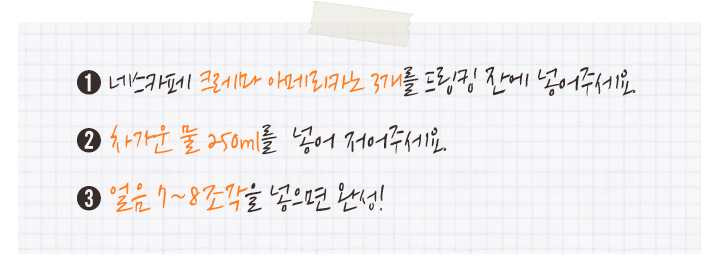 1 네스카페 크레마 아메리카노 3개를 드링킹 잔에 넣어주세요.
2 차가운 물 250ml를 넣어 저어주세요.
3 얼음 7~8조각을 넣으면 완성!